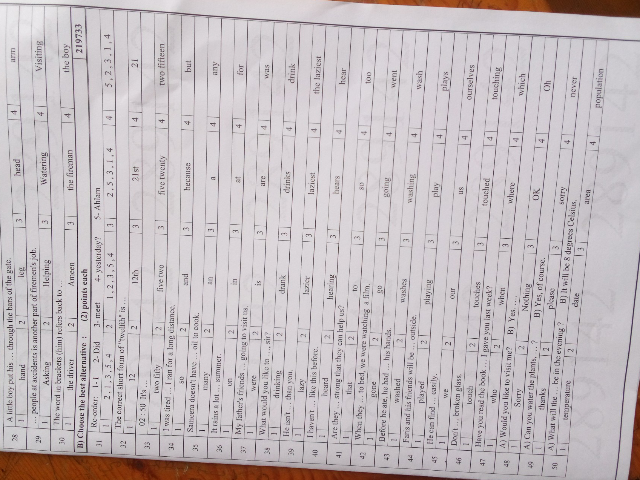 28 A little boy put his ... through the bars of the gate.
1 hand 2 leg 3 head 4 arm
29 ... people at accidents is another part of firemen's job.
1 Asking 2 Helping 3 Watering 4 Visiting
30 The word in brackets (him) refers back to .
1 the driver 2 Ameen 3 the fireman 4 the boy
B) Choose the best alternative : (2) points each 219733
31 Re-order: 1-I 2- Did 3- meet 4- yesterday? 5- Ahlam
1 2 , 1 , 3 , 5 , 4 2 1 , 2 , 3 , 5 , 4 3 2 , 5 , 3 , 1 , 4 4 5 , 2 , 3 , 1 , 4
32 The correct short form of "twelfth" is ...
1 12 2 12th 3 21st 4 21
33 02 : 50 It's ...
1 two fifty 2 five two 3 five twenty 4 two fifteen
34 I was tired ... I ran for a long distance.
1 so 2 and 3 because 4 but
35 Sameera doesn't have ... oil to cook.
1 many 2 an 3 a 4 any
36 It rains a lot ... summer.
1 on 2 in 3 at 4 for
37 My father's friends ... going to visit us.
1 were 2 is 3 are 4 was
38 What would you like to ... sir?
1 drinking 2 drank 3 drinks 4 drink
39 He isn't ... than you.
1 lazy 2 lazier 3 laziest 4 the laziest
40 I haven't ... like this before.
1 heard 2 hearing 3 hears 4 hear
41 Are they ... strong that they can help us?
2 to 3 so 4 too
42 When they ... to bed, we were watching a film.
1 gone 2 go 3 going 4 went
43 Before he ate, he had ... his hands.
1 washed 2 washes 3 washing 4 wash
44 Faris and his friends will be ... outside.
1 played 2 playing 3 play 4 plays
45 He can find ... easily.
1 we 2 our 3 us 4 ourselves
46 Don't ... broken glass.
1 touch 2 touches 3 touched 4 touching
47 Have you read the book ... I gave you last week?
1 who 2 when 3 where 4 which
48 A) Would you like to visit me? B) Yes, ...
1 Sorry 2 Nothing 3 OK 4 Oh
49 A) Can you water the plants, ...? B) Yes, of course.
1 thanks 2 please 3 sorry 4 never
50 A) What will the ... be in the evening ? B) It will be 8 degrees Celsius.
1 temperature 2 date 3 area 4 population